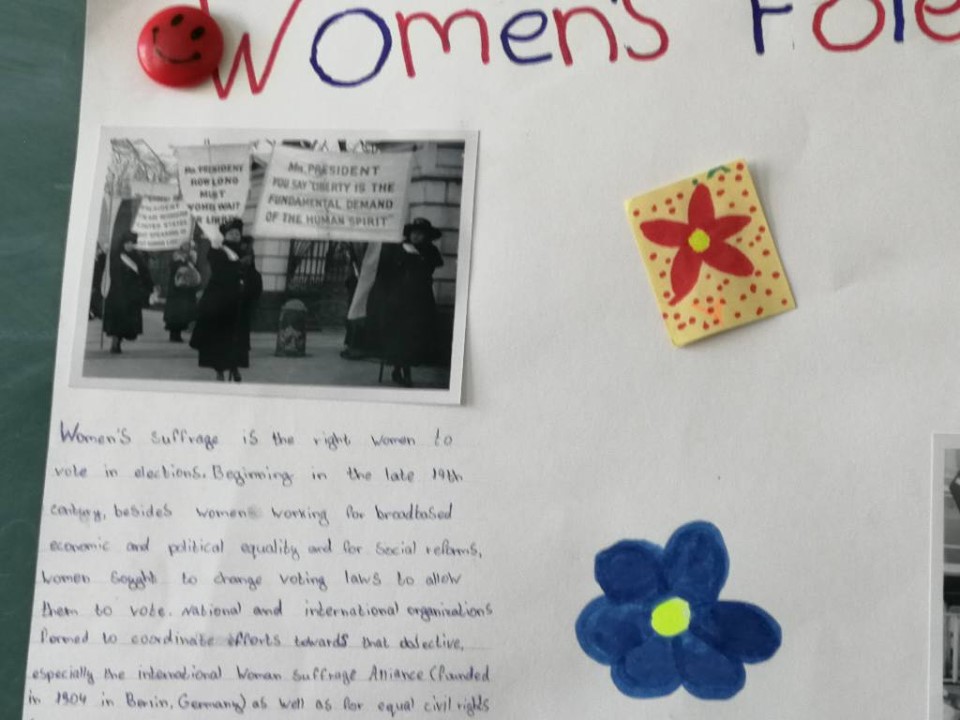 Women's
Mr. PRESIDENT
HOW LONG
MUST
WOMEN WAIT
FOR LIBERTY
Mr. PRESIDENT
YOU SAY "LIBERTY IS THE
FUNDAMENTAL DEMAND
OF THE HUMAN SPIRIT"
PRESIDENT
UNITED STATES
Women's suffrage is the right women to
vote in elections. Beginning in the late 19th
century, besides women working for broadbased
economic and political equality and for social reforms,
women sought to change voting laws to allow
them to vote. National and international organizations
formed to coordinate efforts towards that objective,
especially the international Woman Suffrage Alliance (founded
in 1904 in Berlin, Germany) as well as for equal civil rights